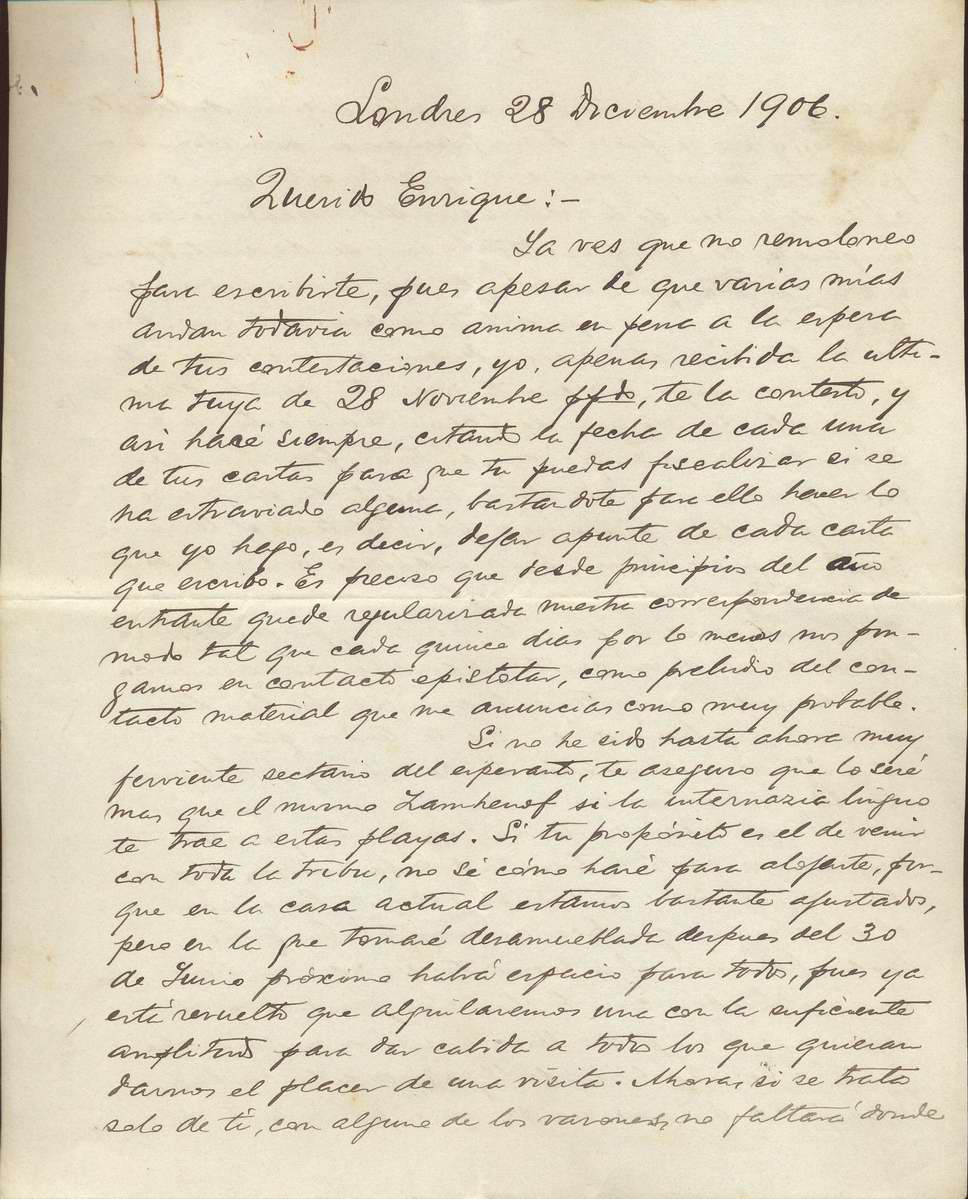 Londres 28 Diciembre 1906.
Querido Enrique:-
Ya ves que no remoloneo
para escribirte, pues apesar de que varias mías
andan todavia como anima en pena a la espera
de tus contestaciones, yo, apenas recibida la ulti-
ma tuya de 28 Noviembre ppdo, te la contesto, y
asi haré siempre, citando la fecha de cada una
de tus cartas para que tu puedas fiscalizar si se
ha estraviado alguna, bastandote para ello hacer lo
que yo hago, es decir, dejar apunte de cada carta
que escribo. Es preciso que desde principios del año
entrante quede regularizada nuestra correspondencia de
modo tal que cada quince dias por lo menos nos pon-
gamos en contacto epistolar, como preludio del con-
tacto material que me anuncias como muy probable.
Si no he sido hasta ahora muy
ferviente sectario del esperanto, te aseguro que lo seré
mas que el mismo Zamhenof si la internazia linguo
te trae a estas playas. Si tu propósito es el de venir
con toda la tribu, no sé cómo haré para alojarte, por-
que en la casa actual estamos bastante ajustados,
pero en la que tomaré desamueblada despues del 30
de Junio próximo habrá espacio para todos, pues ya
está resuelto que alquilaremos una con la suficiente
amplitud para dar cabida a todos los que quieran
darnos el placer de una visita. Ahora, si se trata
solo de ti, con alguno de los varones, no faltará donde